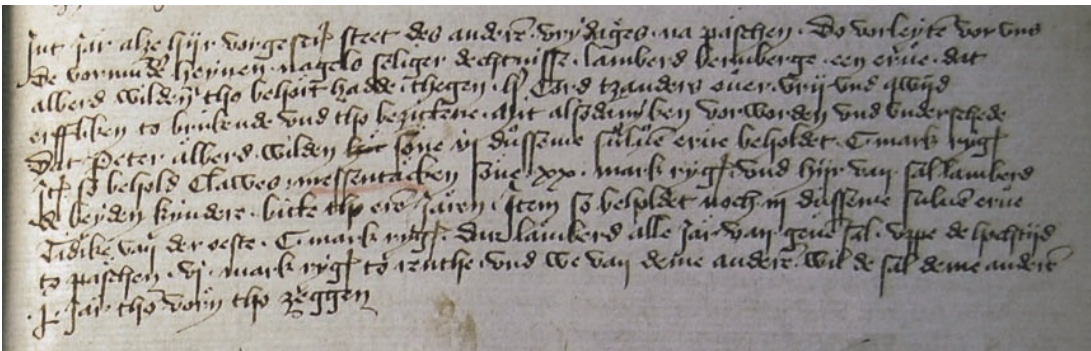 Int Jar alze hijr vorgescr steet des anderen vrydages na paschen Do vorleyte vor vns
de vormunder heynen nagels seliger dechtnisse lamberd bernberge een erue dat
alberd wilden tho behoirt hadde thegen Cord tzanders ouer vrij vnd qwijd
erffliken to brukende vnd tho bezittene mit alsodanen vorworden vnd vnderschede
Dat Peter alberd wilden sone in dusseme suluen erue beholdet C mark ryg
Ite so behold Clawes messentaken sone xx mark ryg vnd hijr van sal lamberd
beyden kyndere tho eren Jaren Item so beholdet noch in dusseme suluen erue
Tidike van der oeste C mark ryg dar lamberd alle Jar van geuen sal vppe de hochtijd
to paschen vj mark ryg to renthe vnd we van deme anderen wil de sal deme anderen
Jar tho vorn tho zeggen